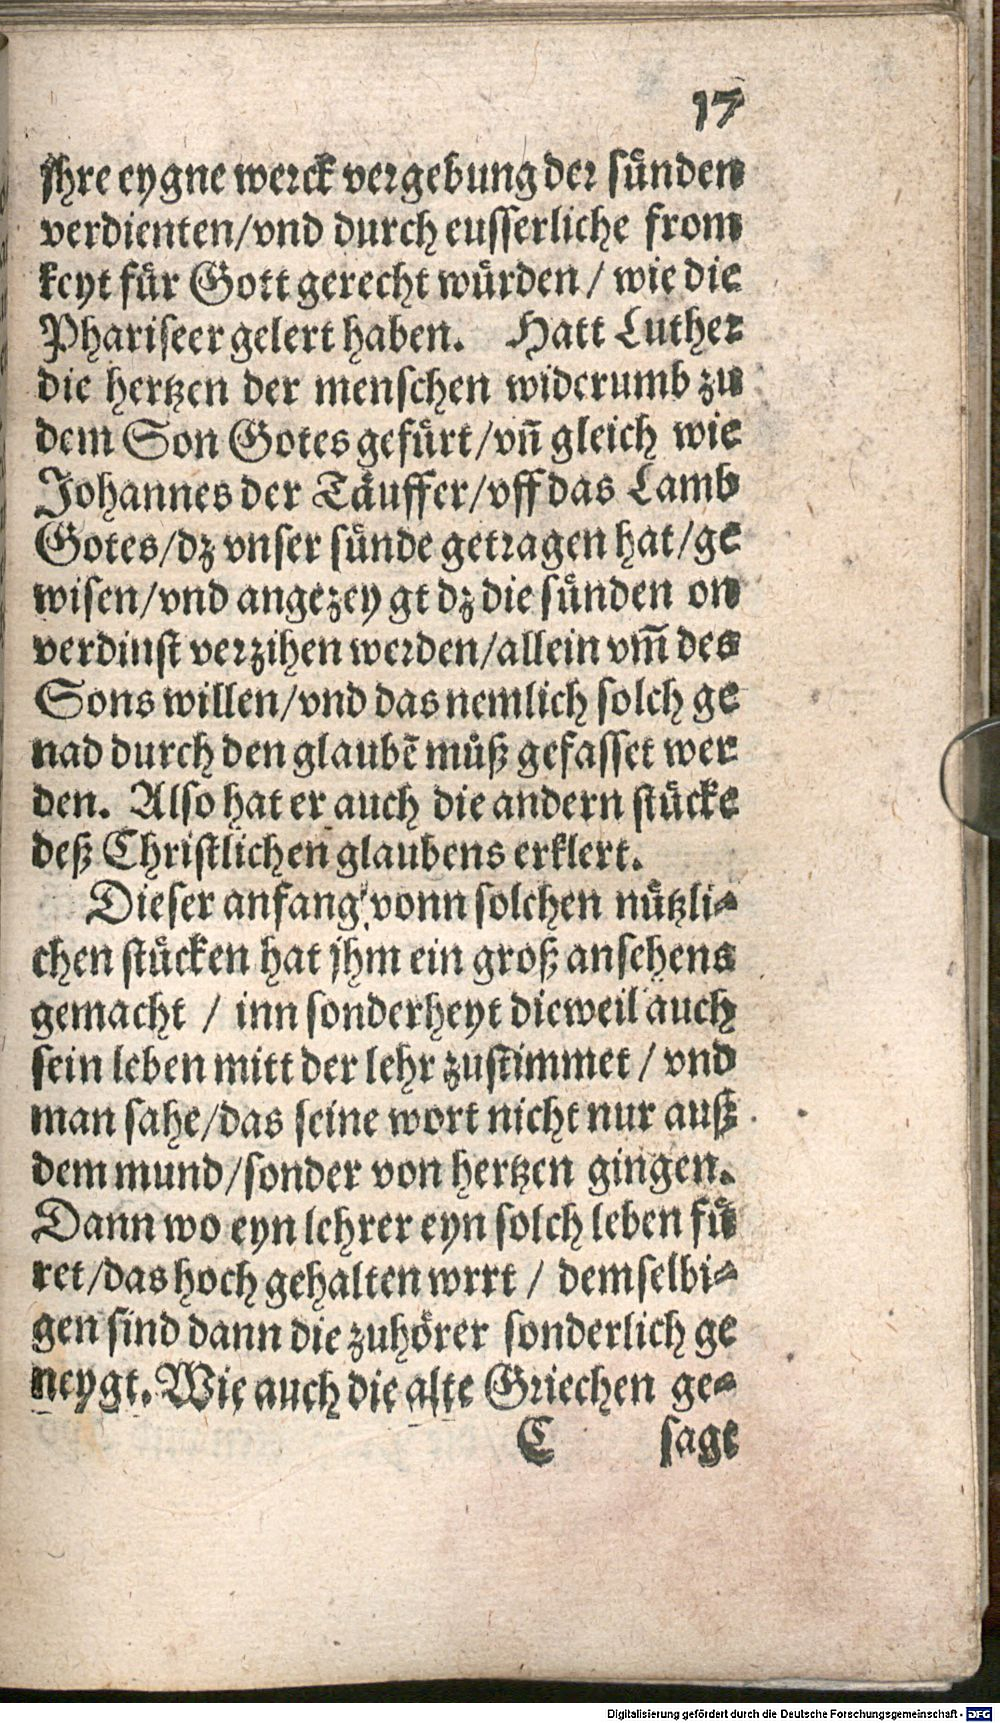 17
jhre eygne werck vergebung der sünden
verdienten/vnd durch eusserliche from
keyt für Gott gerecht würden/ wie die
Phariseer gelert haben. Hatt Luther
die hertzen der menschen widerumb zu
dem Son Gotes gefürt/vñ gleich wie
Johannes der Täuffer/vff das Lamb
Gotes/dz vnser sünde getragen hat/ge
wisen/vnd angezeygt dz die sünden on
verdinst verzihen werden/allein vm̃ des
Sons willen/vnd das nemlich solch ge
nad durch den glaubẽ müß gefasset wer
den. Also hat er auch die andern stücke
deß Christlichen glaubens erklert.
Dieser anfang/vonn solchen nützli⸗
chen stücken hat jhm ein groß ansehens
gemacht / inn sonderheyt dieweil auch
sein leben mitt der lehr zustimmet / vnd
man sahe/das seine wort nicht nur auß
dem mund/sonder von hertzen gingen.
Dann wo eyn lehrer eyn solch leben fü
ret/das hoch gehalten wrrt / demselbi⸗
gen sind dann die zuhörer sonderlich ge
neygt. Wie auch die alte Griechen ge⸗
C sage
Digitalisierung gefördert durch die Deutsche Forschungsgemeinschaft - DFG